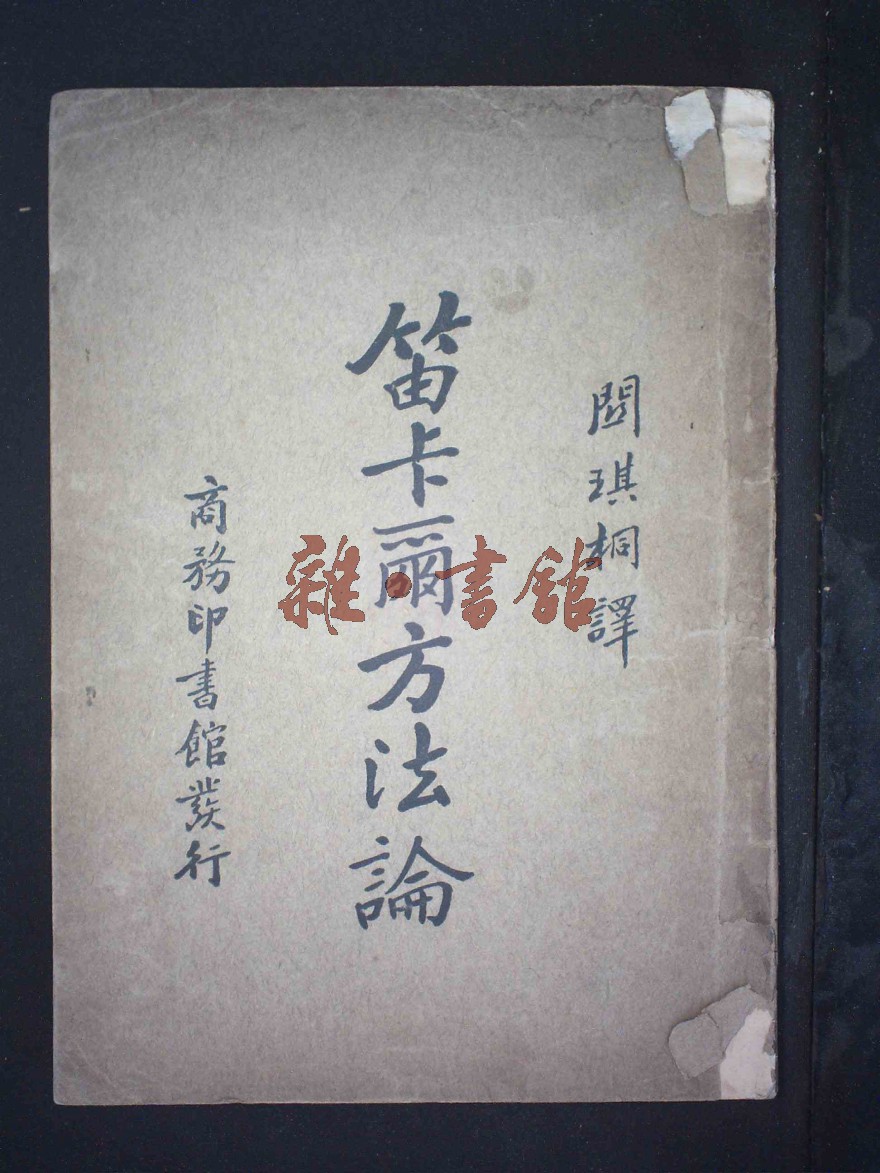 關琪桐譯
笛卡爾方法論
商務印書館發行
雜·書館